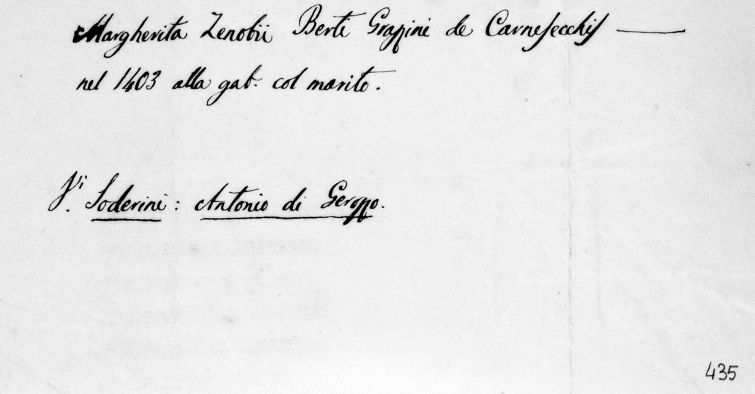 Margherita Zenobii Berti Grazini de Carnesecchis —
nel 1403 alla gab. col marito.
Vi. Soderini: Antonio di Gerozzo.
435